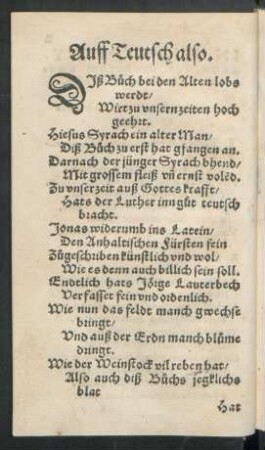 Auff Teutsch also.
DIß Bůch bei den Alten lobs
werdt/
Wirt zu vnsern zeiten hoch
geehrt.
Hiesus Syrach ein alter Man/
Diß Bůch zu erst hat gfangen an.
Darnach der jünger Syrach bhend/
Mit grossem fleiß vñ ernst volẽd.
Zu vnser zeit auß Gottes krafft/
Hats der Luther inn gůt teutsch
bracht.
Jonas widerumb ins Latein/
Den Anhaltischen Fürsten fein
Zůgeschriben künstlich vnd wol/
Wie es denn auch billich sein soll.
Endtlich hats Jörge Lauterbech
Verfasset fein vnd ordenlich.
Wie nun das feldt manch gwechse
bringt/
Vnd auß der Erdn manch blůme
dringt.
Wie der Weinstock vil reben hat/
Also auch diß Bůchs jegklichs
blat
Hat